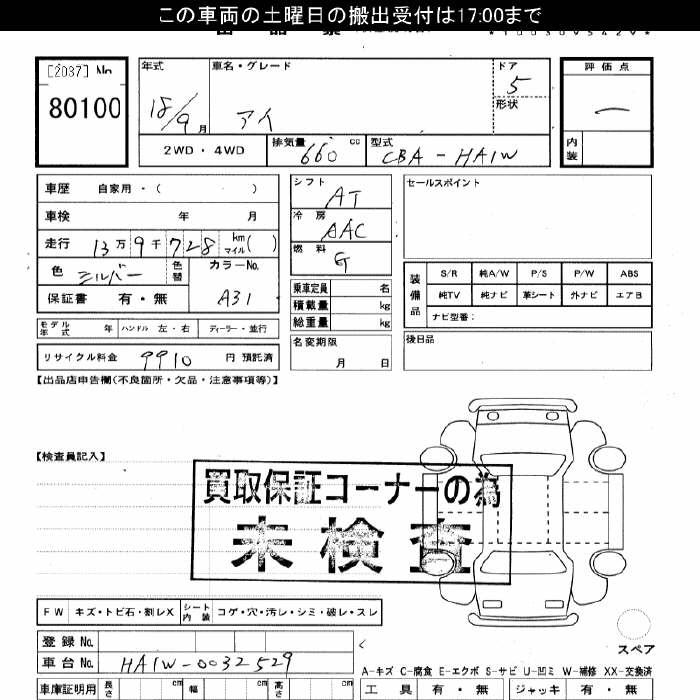 この車両の土曜日の搬出受付は17:00まで
[2037] No
80100
年式 車名・グレード ドア 評価点
18/9 月 アイ 5 ー
形状
2WD・4WD 排気量 660 cc 型式 CBA-HA1W 内装
車歴 自家用・( ) シフト AT セールスポイント
車検 年 月 冷房 AAC
走行 13万9千728 km マイル ( ) 燃料 G
色 シルバー 色替 カラーNo. A31
保証書 有・無
乗車定員 名
積載量 kg
総重量 kg
装備品 S/R 純A/W P/S P/W ABS
純TV 純ナビ 革シート 外ナビ エアB
ナビ型番:
モデル年式 年 ハンドル 左・右 ディーラー・並行
名変期限 月 日
後日品
リサイクル料金 9910 円 預託済
【出品店申告欄(不良箇所・欠品・注意事項等)】
【検査員記入】
買取保証コーナーの為
未検査
FW キズ・トビ石・割レX シート内装 コゲ・穴・汚レ・シミ・破レ・スレ
登録No.
車台No. HA1W-0032529
スペア
A-キズ C-腐食 E-エクボ S-サビ U-凹ミ W-補修 XX-交換済
車庫証明用 長さ cm 幅 cm 高さ cm 工具 有・無 ジャッキ 有・無